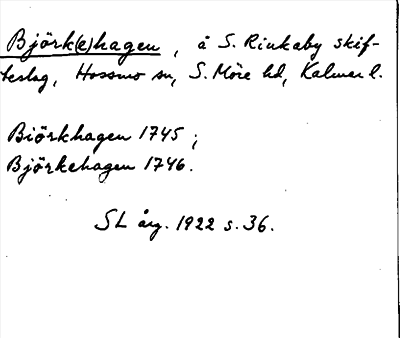 Björk(e)hagen, å S. Rinkaby skif-
teslag, Hossmo sn, S. Möre hd, Kalmar l.
Biörkhagen 1745;
Björkehagen 1746.
SL årg. 1922 s. 36.